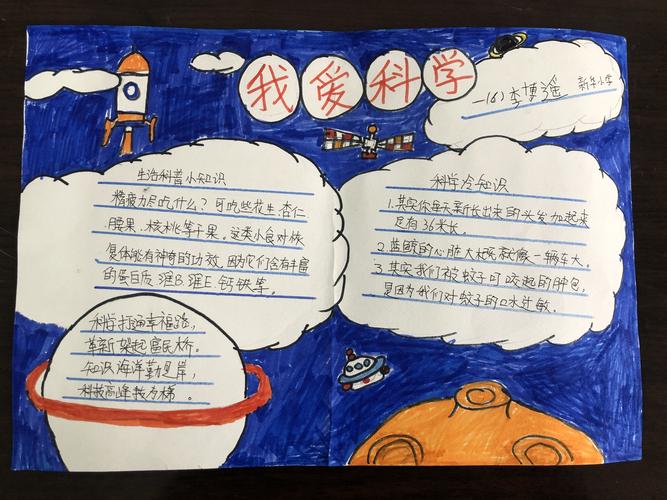 我爱科学
一(6) 李博瑶 新华小学
生活科普小知识
精疲力尽吃什么？可吃些花生、杏仁
腰果、核桃等干果。这类小食对恢
复体能有神奇的功效，因为它们含有丰富
的蛋白质、维B、维E、钙铁等。
科学冷知识
1.其实你每天新长出来的头发加起来
足有36米长。
2.蓝鲸的心脏大概就像一辆车大。
3.其实我们被蚊子叮咬起的肿包，
是因为我们对蚊子的口水过敏。
科学打通幸福路，
革新架起富民桥。
知识海洋勤是岸，
科技高峰我为梯。